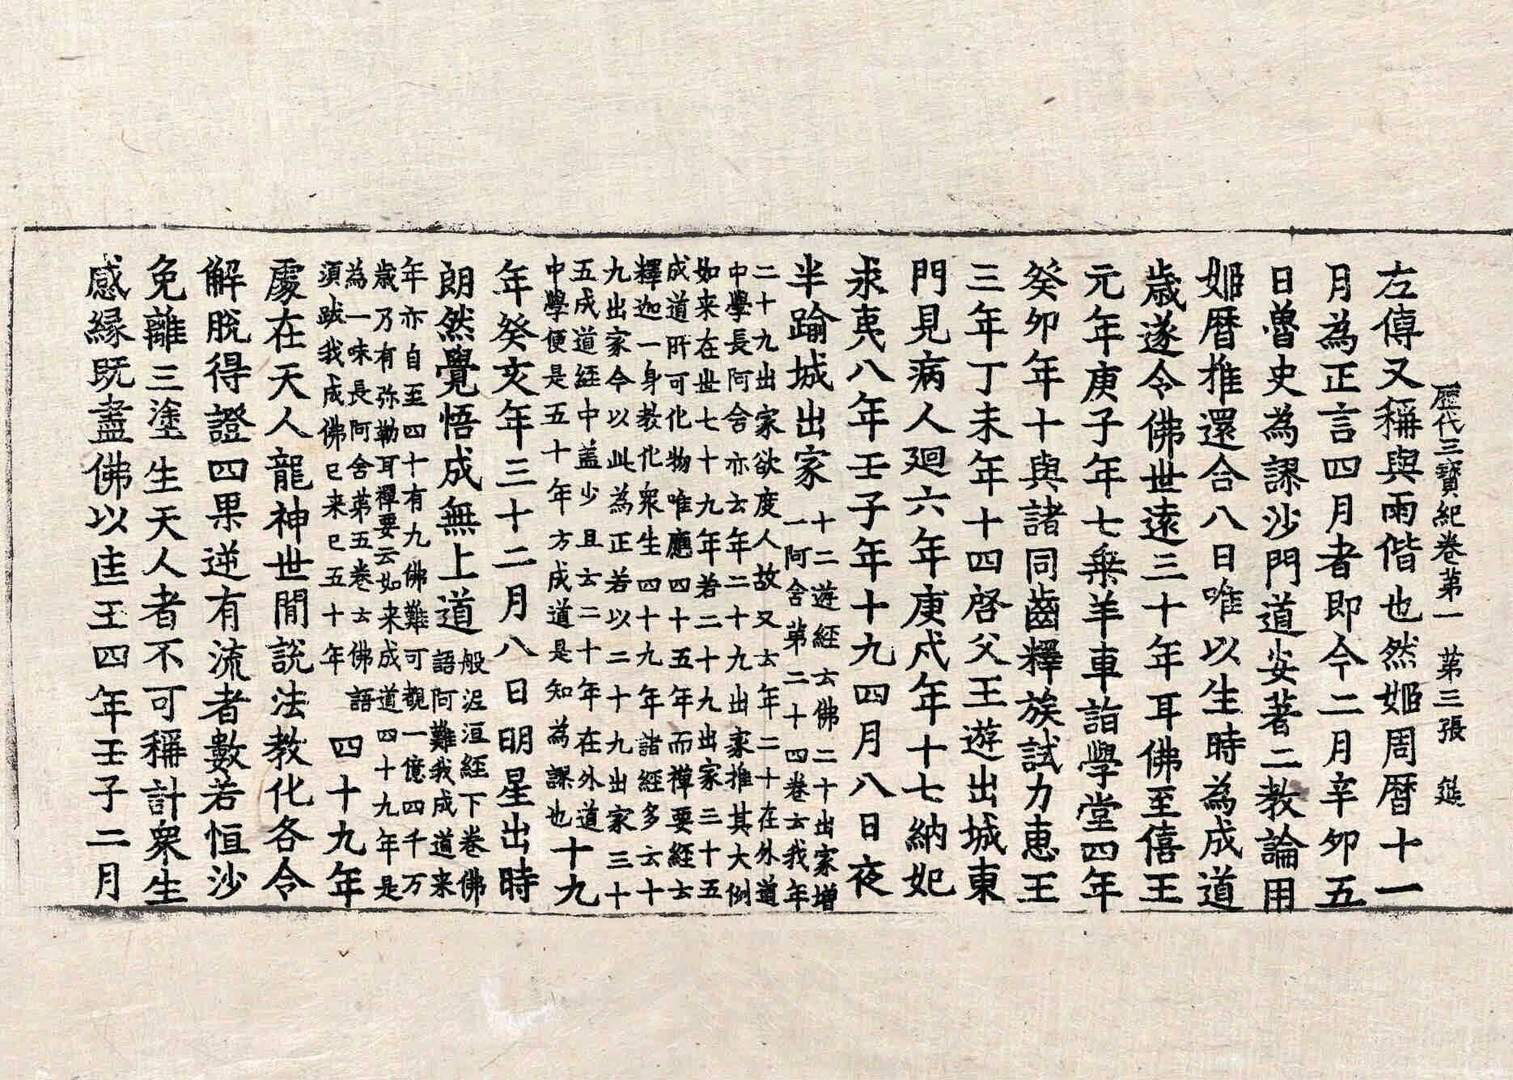 歷代三寶紀卷第一　第三張　筵
左傳又稱與雨偕也然姬周曆十一
月為正言四月者即今二月辛夘五
日魯史為謬沙門道安著二教論用
姬曆推還合八日唯以生時為成道
歲遂令佛世遠三十年耳佛至僖王
元年庚子年七乗羊車詣學堂四年
癸夘年十與諸同齒釋族試力惠王
三年丁未年十四啓父王遊出城東
門見病人廻六年庚戌年十七納妃
求夷八年壬子年十九四月八日夜
半踰城出家
十二遊經云佛二十出家增
一阿含第二十四卷云我年
二十九出家欲度人故又云年二十在外道
中學長阿含亦云年二十九出家推其大例
如来在世七十九年若二十九出家三十五
成道所可化物唯應四十五年而禪要經云
釋迦一身教化衆生四十九年諸經多云十
九出家今以此為正若以二十九出家三十
五成道經中蓋少且云二十年在外道
中學便是五十年方成道是知為謬也
十九
年癸亥年三十二月八日明星出時
朗然覺悟成無上道
般泥洹經下卷佛
語阿難我成道来
年亦自至四十有九佛難可覩一億四千万
歲乃有弥勒耳禪要云如来成道四十九年是
為一味長阿含第五卷云佛語
須跋我成佛已来已五十年
四十九年
處在天人龍神世間說法教化各令
解脫得證四果逆有流者數若恒沙
免離三塗生天人者不可稱計衆生
感緣既盡佛以匡王四年壬子二月